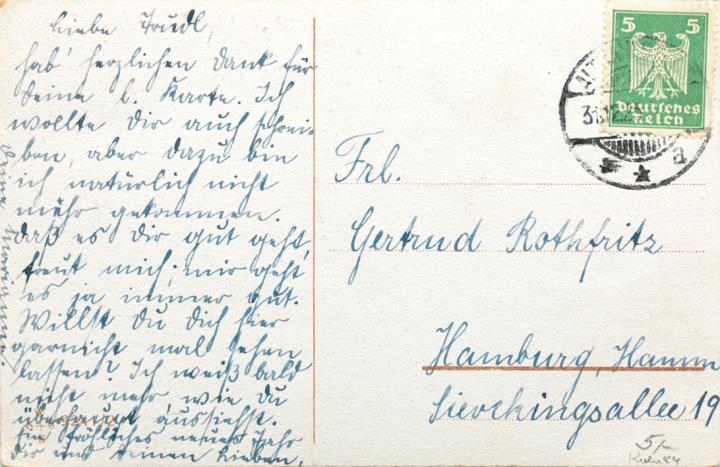 Liebe Trudl,
hab' herzlichen Dank für
Deine l. Karte. Ich
wollte Dir auch schrei-
ben, aber dazu bin
ich natürlich nicht
mehr gekommen.
Daß es Dir gut geht,
freut mich; mir geht
es ja immer gut.
Willst Du Dich hier
garnicht mal sehen
lassen? Ich weiß bald
nicht mehr, wie Du
überhaupt aussiehst.
Ein fröhliches neues Jahr
Dir und Deinen Lieben,
Deine Marianne.
5 5
Deutsches
Reich
31.12.
a
Frl.
Gertrud Rothfritz
Hamburg, Hamm
Sievekingsallee 19
5/-